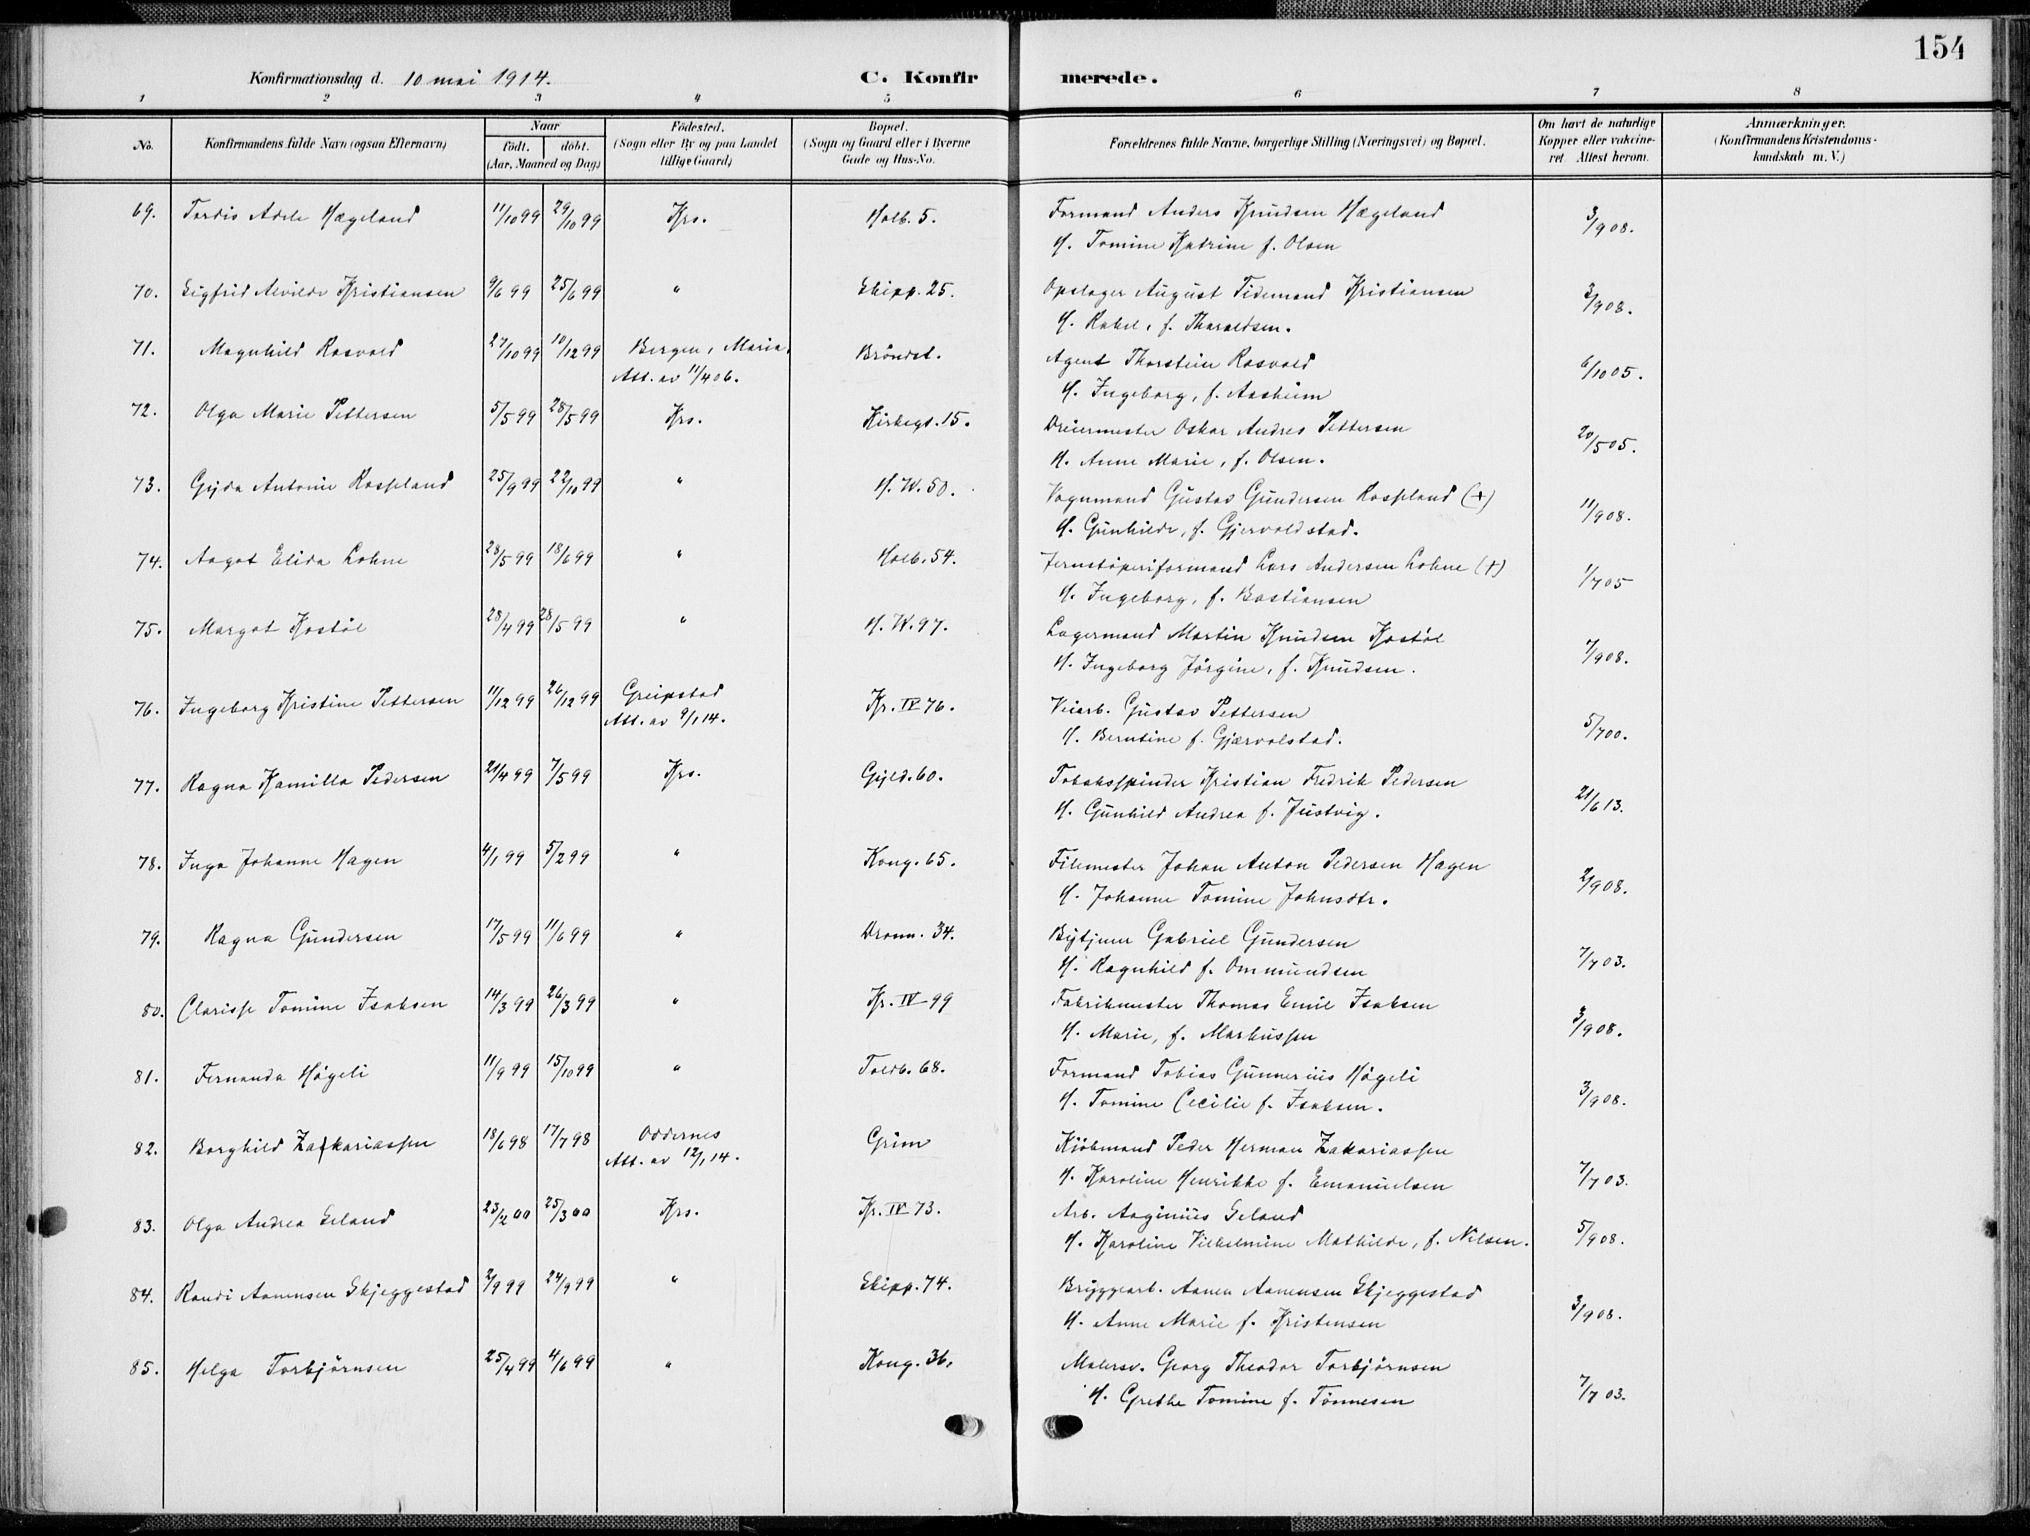 154
Konfirmationsdag d. 10 mai 1914. C. Konfirmerede.
1 2 3 4 5 6 7 8
No. Konfirmandens fulde Navn (ogsaa Efternavn) Naar født. døbt. (Aar, Maaned og Dag) Fødested. (Sogn eller By og paa Landet tillige Gaard) Bopæl. (Sogn og Gaard eller i Byerne Gade og Hus-No. Forældrenes fulde Navne, borgerlige Stilling (Næringsvei) og Bopæl. Om havt de naturlige Kopper eller vakcineret. Attest herom. Anmærkninger. (Konfirmandens Kristendomskundskab m. V.)
69. Tordis Adele Hægeland 11/10 99 29/10 99 Krs. Holb. 5. Formand Anders Knudsen Hægeland 3/9 08.
H. Tomine Katrine f. Olsen
70. Sigfrid Alvilde Kristiansen 9/6 99 25/6 99 " Skipp. 25. Opslager August Tidemand Kristiansen 3/9 08.
H. Rakel, f. Tharaldsen.
71. Magnhild Rosvold 27/10 99 10/12 99 Bergen, Maria, Brøndst. Agent Thorstein Rosvold 6/10 05.
Att. av 11/4 06. H. Ingeborg, f. Aasheim
72. Olga Marie Pettersen 5/5 99 28/5 99 Krs. Kirkegt. 15. Dreiermester Oskar Andres Pettersen 20/5 05.
H. Anne Marie, f. Olsen.
73. Gyda Antonie Rossland 25/9 99 22/10 99 " H. W. 50. Vognmand Gustav Gundersen Rossland (+) 11/9 08.
H. Gunhilde, f. Gjervoldstad.
74. Aagot Elida Lohne 28/5 99 18/6 99 " Holb. 54. Jernstøperiformand Lars Andersen Lohne (+) 1/7 05
H. Ingeborg, f. Bastiansen
75. Margot Kostøl 28/4 99 28/5 99 " H. W. 97. Lagermand Martin Knudsen Kostøl 7/9 08.
H. Ingeborg Jørgine, f. Knudsen.
76. Ingeborg Kristine Pettersen 11/12 99 26/12 99 Greipstad Kr. IV 76. Veiarb. Gustav Pettersen 5/7 00.
Att. av 9/1 14. H. Berntine f. Gjærvolstad.
77. Ragna Kamilla Pedersen 21/4 99 7/5 99 Krs. Gyld. 60. Tobaksspinder Kristian Fredrik Pedersen 21/6 13.
H. Gunhild Andrea f. Justvig.
78. Inga Johanne Hagen 4/1 99 5/2 99 " Kong. 65. Filemester Johan Anton Pedersen Hagen 2/9 08.
H. Johanne Tomine Johnsdtr.
79. Ragna Gundersen 17/5 99 11/6 99 " Dronn. 34. Bytjener Gabriel Gundersen 7/7 03.
H. Ragnhild f. Ommundsen
80. Clarisse Tomine Isaksen 14/3 99 26/3 99 " Kr. IV 99 Fabrikmester Thomas Emil Isaksen 3/9 08.
H. Marie, f. Markussen
81. Fernanda Høgeli 11/9 99 15/10 99 " Toldb. 68. Formand Tobias Gunnerius Høgeli 3/9 08.
H. Tomine Cecilie f. Isaksen.
82. Borghild Zakkariassen 18/6 98 17/7 98 Oddernes Grim Kjøbmand Peder Herman Zakariassen 7/7 03.
Att. av 12/1 14. H. Karoline Henrikke f. Emanuelsen
83. Olga Andrea Geland 23/2 00 25/3 00 Krs. Kr. IV 73. Arb. Aaginius Geland 5/9 08.
H. Karoline Vilhelmine Mathilde, f. Nilsen.
84. Randi Aanensen Skjeggestad 2/9 99 24/9 99 " Skipp. 74. Bryggearb. Aanen Aanensen Skjeggestad 3/9 08.
H. Anne Marie f. Kristensen
85. Helga Torbjørnsen 25/4 99 4/6 99 " Kong. 36. Malersv. Georg Theodor Torbjørnsen 7/7 03.
H. Grethe Tomine f. Tønnesen